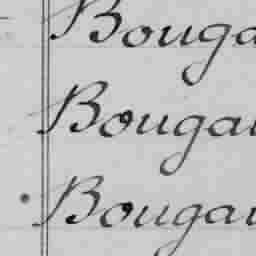 Bouga
Bougai
Bougai